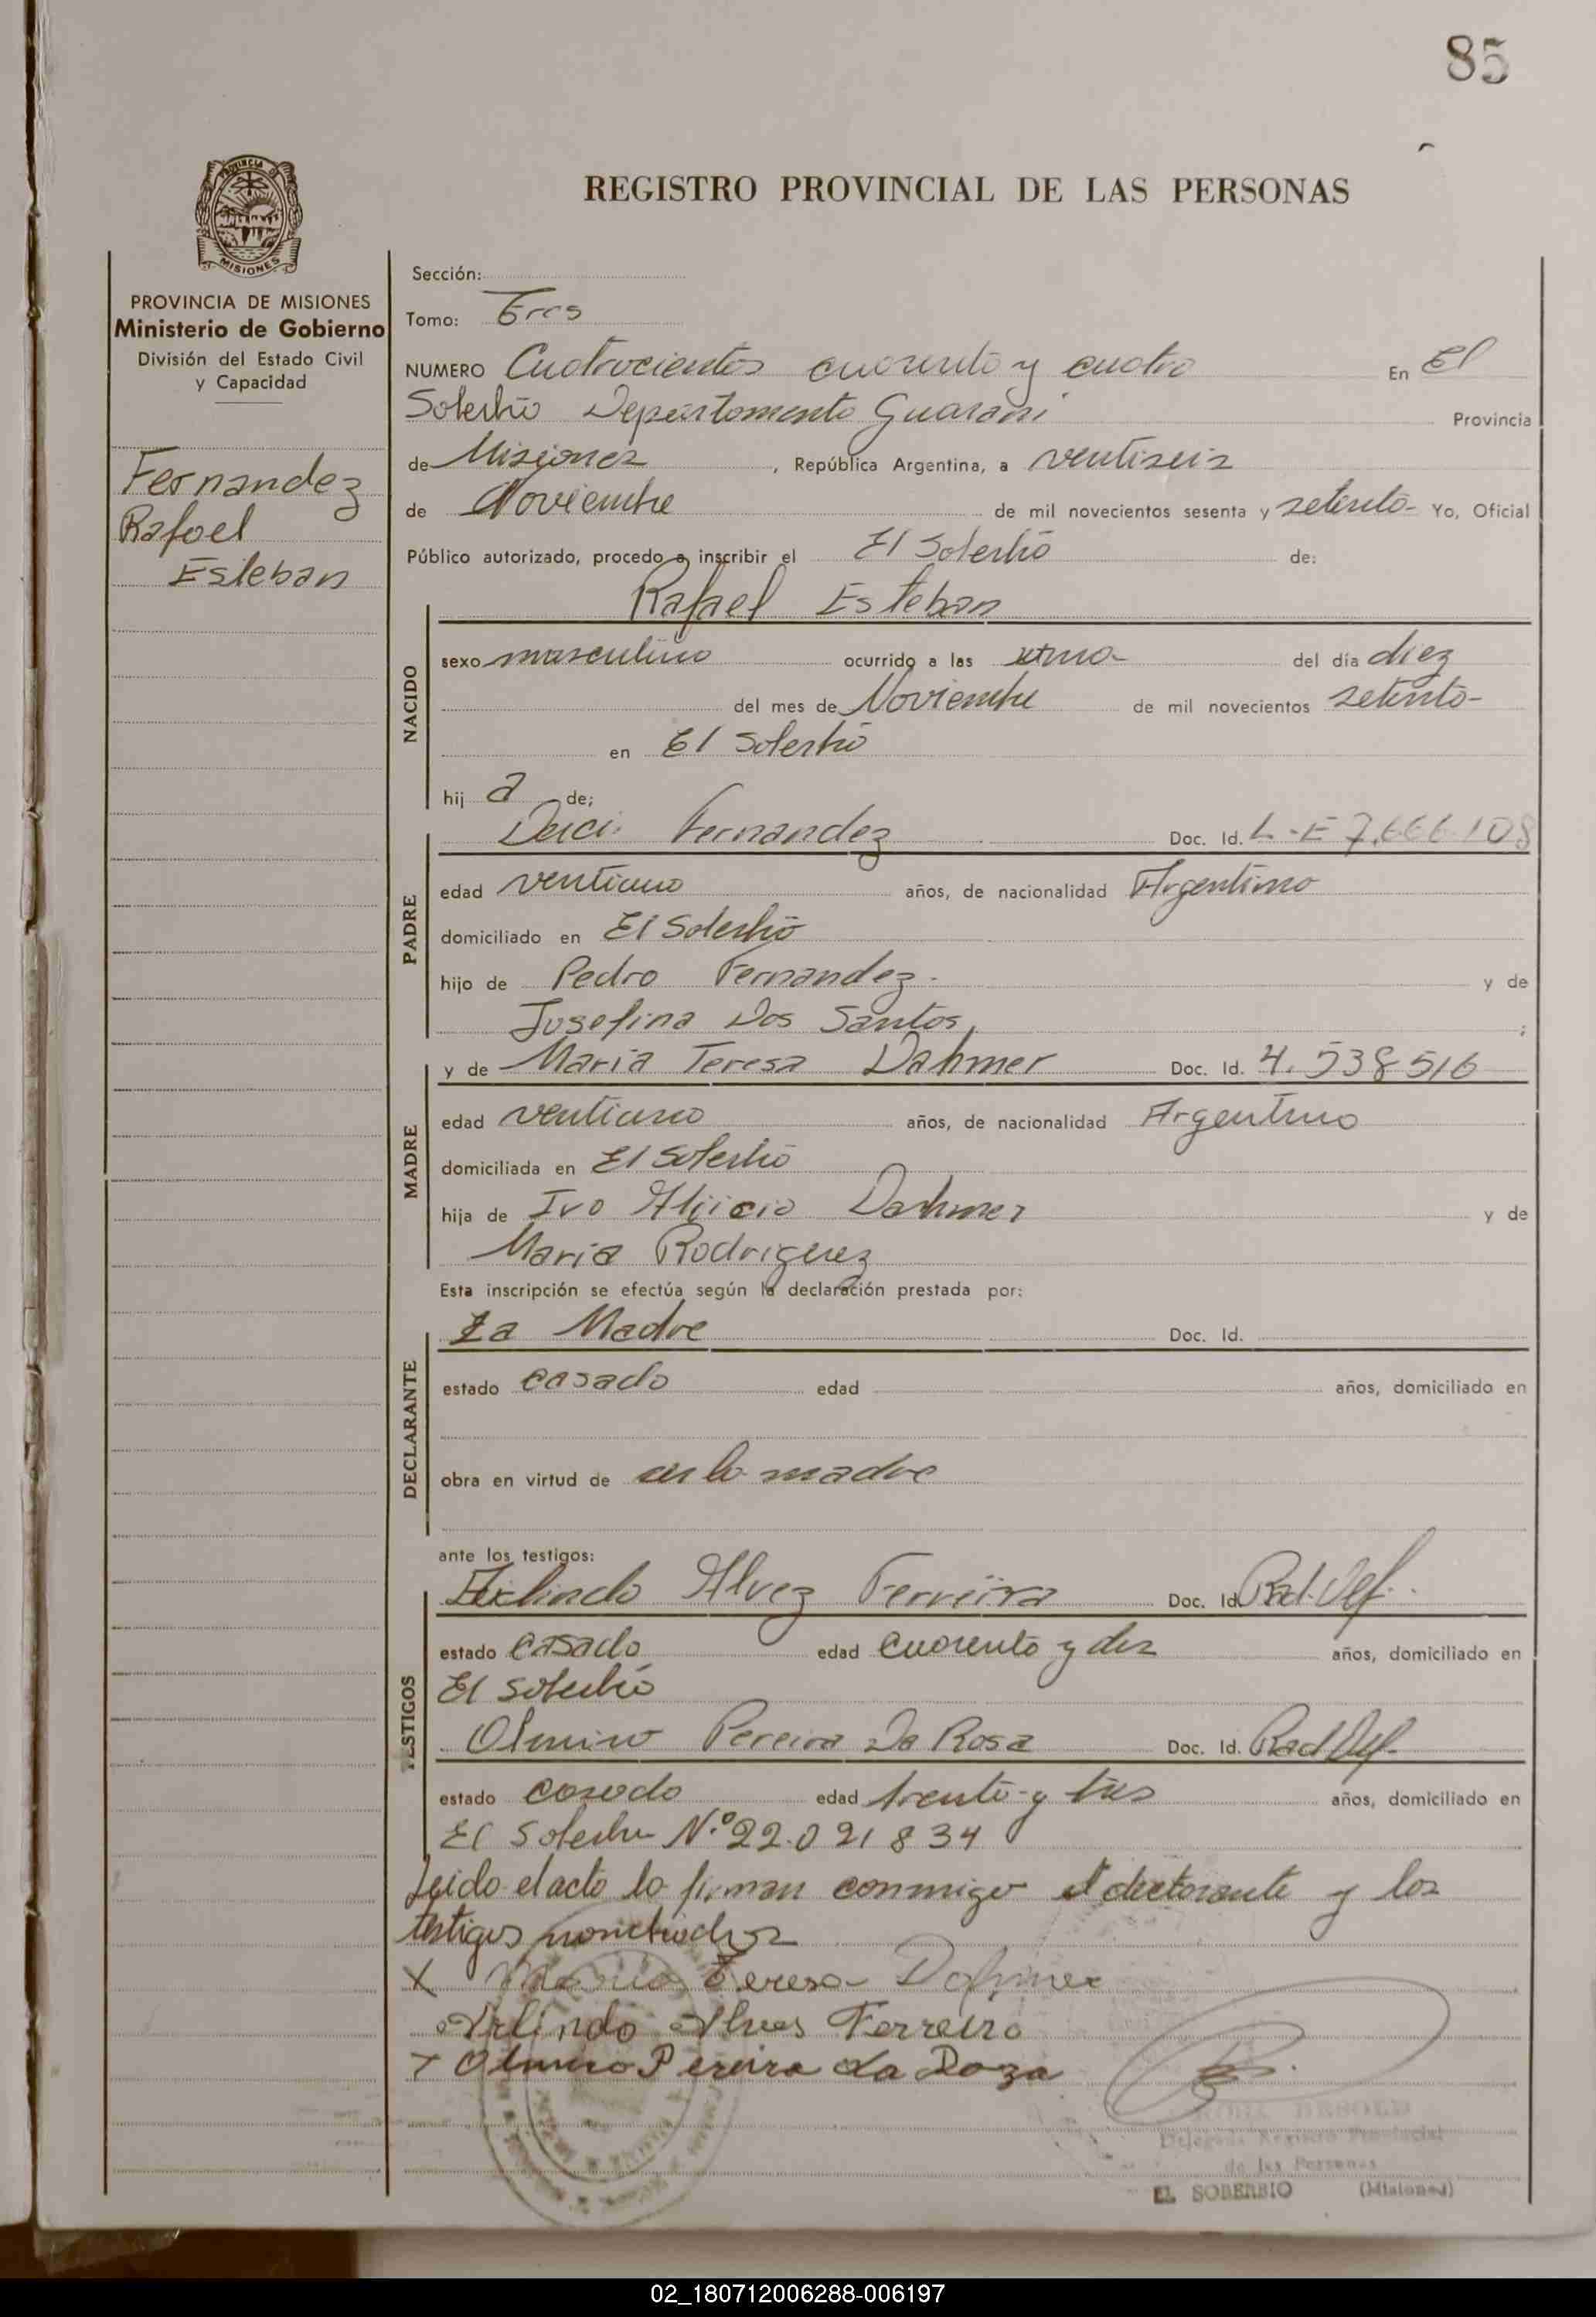 85
REGISTRO PROVINCIAL DE LAS PERSONAS
PROVINCIA
MISIONES
PROVINCIA DE MISIONES
Ministerio de Gobierno
División del Estado Civil
y Capacidad
Fernandez
Rafael
Esteban
Sección:
Tomo: Tres
NUMERO Cuatrocientos cuarenta y cuatro En El
Soberbio Departamento Guarani Provincia
de Misiones, República Argentina, a ventiseis
de Noviembre de mil novecientos sesenta y setenta- Yo, Oficial
Público autorizado, procedo a inscribir el El Soberbio de:
Rafael Esteban
NACIDO
sexo masculino ocurrido a las una- del día diez
del mes de Noviembre de mil novecientos setenta-
en El Soberbio
hij a de;
PADRE
Fernandez Doc. Id. L-E 7.666.108
edad ventiuno años, de nacionalidad Argentino
domiciliado en El Soberbio
hijo de Pedro Fernandez- y de
Josefina Dos Santos;
MADRE
y de Maria Teresa Dahmer Doc. Id. 4.538516
edad ventiuno años, de nacionalidad Argentino
domiciliada en El Soberbio
hija de Ivo Dahmer y de
Maria Rodriguez
Esta inscripción se efectúa según la declaración prestada por:
DECLARANTE
La Madre Doc. Id.
estado casado edad años, domiciliado en
obra en virtud de ser la madre
ante los testigos:
TESTIGOS
Arlindo Alvez Ferreira Doc. Id. Rad. Def.
estado casado edad cuarenta y dos años, domiciliado en
El Soberbio
Olmiro Pereira Da Rosa Doc. Id. Rad Def.
estado casado edad trenta y tres años, domiciliado en
El Soberbio N.º 22.021834
Leido el acto lo firman conmigo el declarante y los
testigos nombrados
X Maria Teresa Dahmer
Arlindo Alves Ferreira
+ Olmiro Pereira da Roza
Delegada Registro Provincial
de las Personas
EL SOBERBIO (Misiones)
02_180712006288-006197